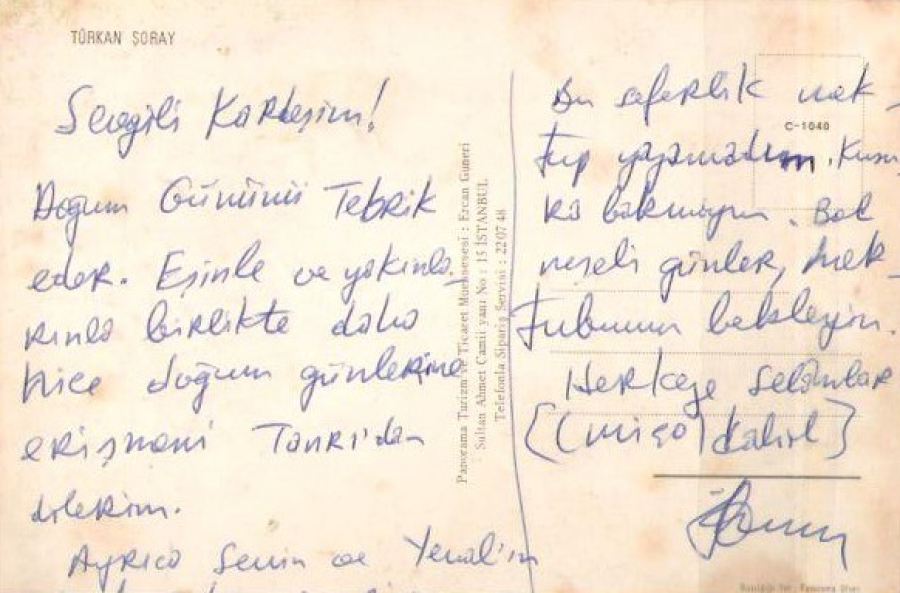 TÜRKAN ŞORAY
Sevgili Kardeşim!
Doğum Gününü Tebrik
eder. Eşinle ve yakınla-
rınla birlikte daha
nice doğum günlerine
erişmeni Tanrı'dan
dilerim.
Ayrıca Senin ve
Panorama Turizm ve Ticaret Müessesesi : Ercan Güneri
Sultan Ahmet Camii yanı No : 15 İSTANBUL
Telefonla Sipariş Servisi : 22 07 48
C-1040
Bu seferlik mek-
tup yazamadım. Kusu
ra bakmayın. Bol
neşeli günler, Mek-
tubumu bekleyin.
Herkese Selâmlar
[(miço) dahil]